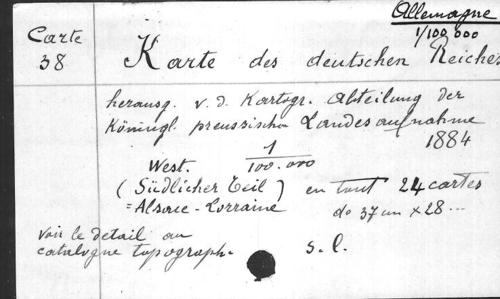 Allemagne
1/100.000
Carte
38
Karte des deutschen Reiches
herausg. v. d. Kartogr. Abteilung der
Königl. preussischen Landesaufnahme
1884
West. 1/100.000
(Südlicher Teil) en tout 24 cartes
= Alsace-Lorraine de 37 cm x 28...
voir le detail au
catalogue topograph. s.l.